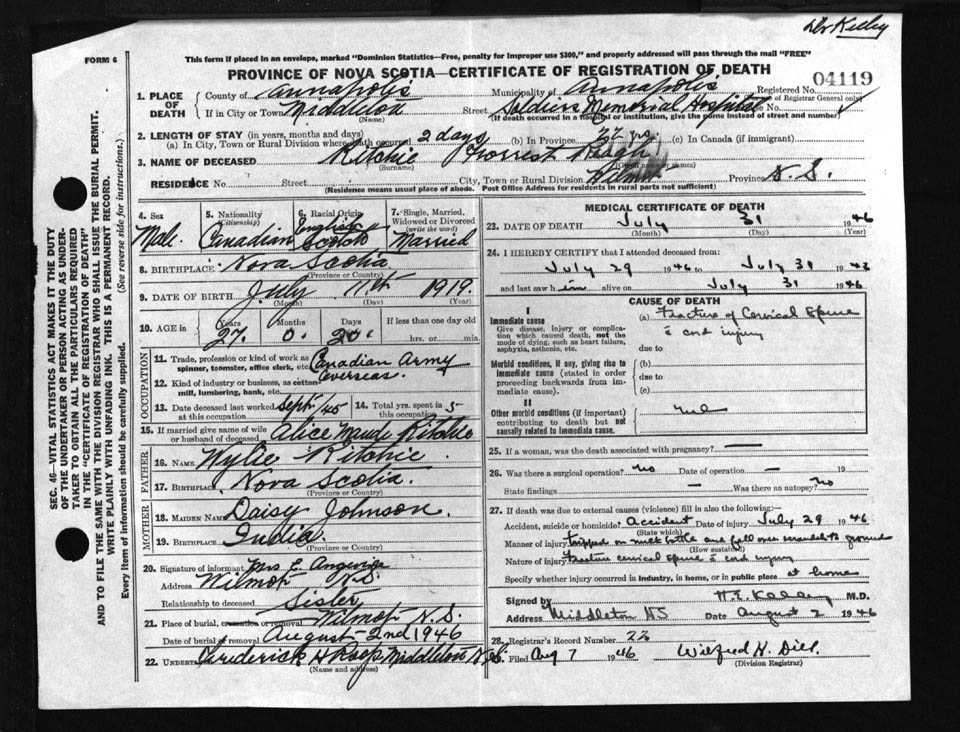 Dr Kelly
FORM 6
This form if placed in an envelope, marked "Dominion Statistics—Free, penalty for improper use $300," and properly addressed will pass through the mail "FREE"
PROVINCE OF NOVA SCOTIA—CERTIFICATE OF REGISTRATION OF DEATH
04119
1. PLACE OF DEATH
County of Annapolis Municipality of Annapolis Registered No.
(For use of Registrar General only)
If in City or Town Middleton Street Soldiers Memorial Hospital No.
(Name) (If death occurred in a hospital or institution, give the name instead of street and number)
2. LENGTH OF STAY (in years, months and days)
(a) In City, Town or Rural Division where death occurred 2 days (b) In Province 22 yrs. (c) In Canada (if immigrant)
3. NAME OF DECEASED Ritchie Forrest
(Surname)
RESIDENCE No. Street City, Town or Rural Division Wilmot Province N.S.
(Residence means usual place of abode. Post Office Address for residents in rural parts not sufficient)
SEC. 46—VITAL STATISTICS ACT MAKES IT THE DUTY
OF THE UNDERTAKER OR PERSON ACTING AS UNDER-
TAKER TO OBTAIN ALL THE PARTICULARS REQUIRED
IN THE "CERTIFICATE OF REGISTRATION OF DEATH"
AND TO FILE THE SAME WITH THE DIVISION REGISTRAR WHO SHALL ISSUE THE BURIAL PERMIT.
WRITE PLAINLY WITH UNFADING INK. THIS IS A PERMANENT RECORD.
Every item of information should be carefully supplied. (See reverse side for instructions.)
4. Sex
Male.
5. Nationality
(Citizenship)
Canadian
6. Racial Origin
English
Scotch
7. Single, Married,
Widowed or Divorced
(write the word)
Married
8. BIRTHPLACE Nova Scotia
(Province or Country)
9. DATE OF BIRTH July 11th 1919.
(Month) (Day) (Year)
10. AGE in Years Months Days If less than one day old
27. 0. 20. hrs. or min.
OCCUPATION
11. Trade, profession or kind of work as
spinner, teamster, office clerk, etc. Canadian Army
Overseas.
12. Kind of industry or business, as cotton
mill, lumbering, bank, etc.
13. Date deceased last worked
at this occupation Sept/45
14. Total yrs. spent in
this occupation 5
15. If married give name of wife
or husband of deceased Alice Maude Ritchie
FATHER
16. NAME Wylie Ritchie
17. BIRTHPLACE Nova Scotia.
(Province or Country)
MOTHER
18. MAIDEN NAME Daisy Johnson.
19. BIRTHPLACE India.
(Province or Country)
20. Signature of informant Mrs E.
Address Wilmot N.S.
Relationship to deceased Sister
21. Place of burial, cremation or removal Wilmot N.S.
Date of burial or removal August 2nd 1946
22. UNDERTAKER Frederick H Roop Middleton N.S.
(Name and address)
MEDICAL CERTIFICATE OF DEATH
23. DATE OF DEATH July 31 1946
(Month) (Day) (Year)
24. I HEREBY CERTIFY that I attended deceased from:
July 29 1946 to July 31 1946
and last saw him alive on July 31 1946
CAUSE OF DEATH
I
Immediate cause
Give disease, injury or complica-
tion which caused death, not the
mode of dying, such as heart failure,
asphyxia, asthenia, etc.
(a) Fracture of Cervical Spine
c̄ cord injury
due to
Morbid conditions, if any, giving rise to
immediate cause (stated in order
proceeding backwards from im-
mediate cause).
(b)
due to
(c)
II
Other morbid conditions (if important)
contributing to death but not
causally related to immediate cause.
nil
25. If a woman, was the death associated with pregnancy? —
26. Was there a surgical operation? no Date of operation — 19
State findings — Was there an autopsy? no
27. If death was due to external causes (violence) fill in also the following:—
Accident, suicide or homicide? Accident Date of injury July 29 1946
(State which)
Manner of injury Tripped on milk bottle and fell over verandah to ground
(How sustained)
Nature of injury Fracture cervical spine c̄ cord injury
Specify whether injury occurred in industry, in home, or in public place at home
Signed by M.D.
Address Middleton NS Date August 2 1946
28. Registrar's Record Number 22
Filed Aug 7 1946 Wilfred H.
(Division Registrar)